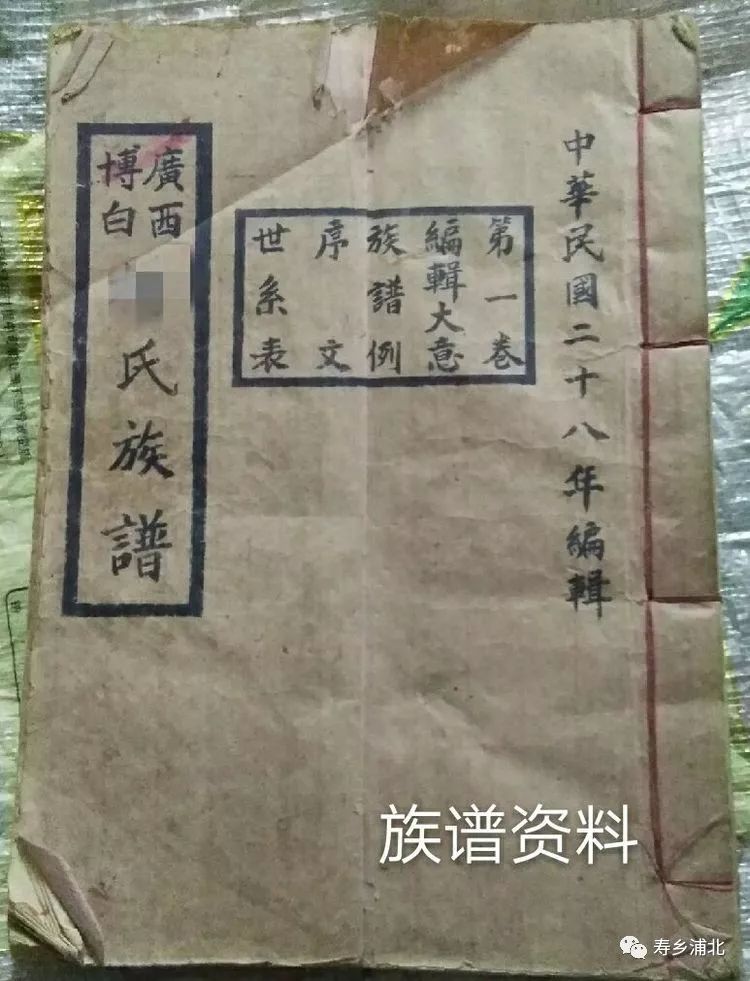 中華民國二十八年編輯
第一卷
編輯大意
族譜例
序文
世系表
廣西
博白
氏族譜
族谱资料
寿乡浦北